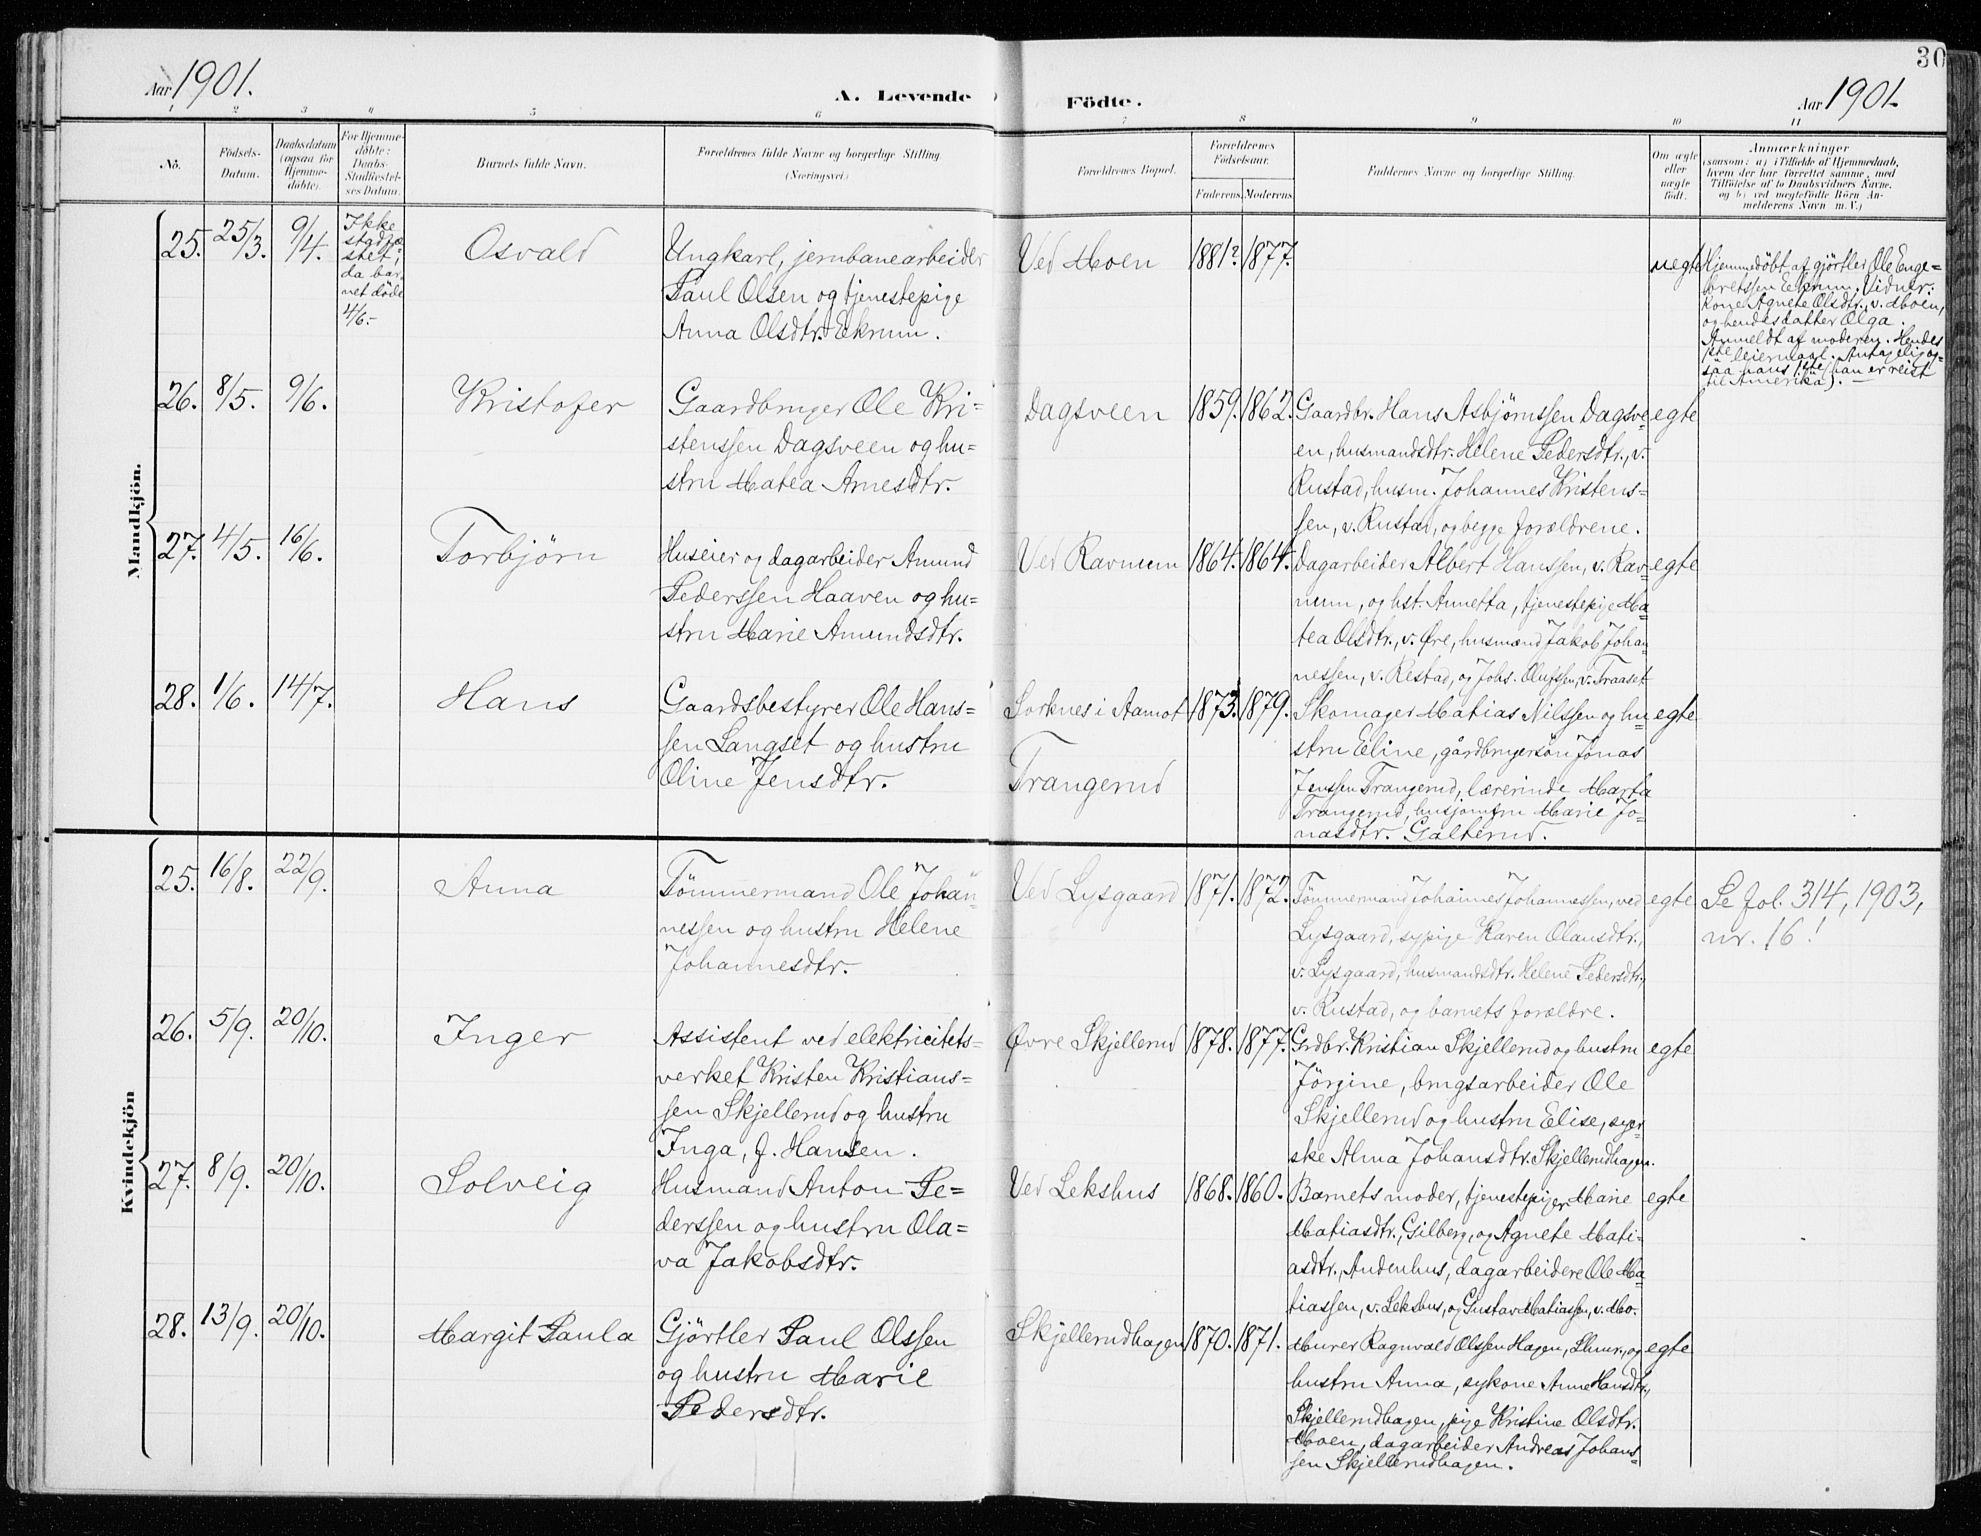 30
Aar 1901.
A. Levende Födte.
Aar 1901.
1 2 3 4 5 6 7 8 9 10 11
No.
Födsels-
Datum.
Daabsdatum
(ogsaa for
Hjemme-
döbte).
For Hjemme-
döbte:
Daabs-
Stadfæstel-
ses Datum.
Barnets fulde Navn.
Forældrenes fulde Navne og borgerlige Stilling
(Næringsvei)
Forældrenes Bopæl.
Forældrenes
Födselsaar.
Faderens. Moderens.
Faddernes Navne og borgerlige Stilling.
Om ægte
eller
uægte
födt.
Anmærkninger
(saasom: a) i Tilfælde af Hjemmedaab,
hvem der har forrettet samme, med
Tilföielse af to Daabsvidners Navne.
og b) ved uægtefödte Börn An-
melderens Navn m. V.)
Mandkjön.
25. 25/3. 9/4.
Ikke
stadfæ-
stet,
da bar-
net döde
4/6.-
Osvald
Ungkarl, jernbanearbeider
Paul Olsen og tjenestepige
Anna Olsdtr. Ekrum.
Ved Moen
1881? 1877.
uegte
Hjemmedöbt af gjörtler Ole Enge=
bretssen Ekrum. Vidner:
Kone Agnete Olsdtr., v. Moen,
og hendes datter Olga.
Anmeldt af moderen. Hendes
1ste leiermaal. Antagelig og-
saa hans 1ste (han er reist
til Amerika). —
26. 8/5. 9/6.
Kristofer
Gaardbruger Ole Kri=
stenssen Dagsveen og hu=
stru Matea Arnesdtr.
Dagsveen
1859. 1862.
Gaardbr. Hans Asbjørnssen Dagsve-
en, husmandsdtr. Helene Pedersdtr., v.
Rustad, husm. Johannes Kristens=
sen, v. Rustad, og begge forældrene.
egte
27. 4/5. 16/6.
Torbjörn
Huseier og dagarbeider Amund
Pederssen Haaven og hu=
stru Marie Amundsdtr.
Ved Ravnum
1864. 1864.
Dagarbeider Albert Hanssen, v. Rav=
num, og hst. Annetta, tjenestepige Ma
tea Olsdtr., v. Øre, husmand Jakob Johan
nessen, v. Restad, og Johs. Olufsen, v. Traaset
egte
28. 1/6. 14/7.
Hans
Gaardsbestyrer Ole Hans=
sen Langset og hustru
Oline Jensdtr.
Sorknes i Aamot
Trangerud
1873. 1879.
Skomager Matias Nilssen og hu=
stru Eline, gårdbrugersön Jonas
Jenssen Trangerud, lærerinde Marta
Trangerud, husjomfru Marie Jo=
nasdtr. Galterud.
egte
Kvindekjön
25. 16/8. 22/9.
Anna
Tömmermand Ole Johan=
nessen og hustru Helene
Johannesdtr.
Ved Lysgaard
1871. 1872.
Tömmermand Johannes Johannessen, ved
Lysgaard, sypige Karen Olausdtr.,
v. Lysgaard, husmandsdtr. Helene Pedersdtr.,
v. Rustad, og barnets forældre.
egte
Se fol. 314, 1903,
nr. 16!
26. 5/9. 20/10.
Inger
Assistent ved elektricitets=
verket Kristen Kristians=
sen Skjellerud og hustru
Inga, f. Hansen.
Øvre Skjellerud
1878. 1877.
Grdbr. Kristian Skjellerud og hustru
Jörgine, brugsarbeider Ole
Skjellerud og hustru Elise, syer=
ske Alma Johansdtr. Skjellerudhagen.
egte
27. 8/9. 20/10.
Solveig
Husmand Anton Pe=
derssen og hustru Ola=
va Jakobsdtr.
Ved Lekshus
1868. 1860.
Barnets moder, tjenestepiger Marie
Matiasdtr., Gilberg, og Agnete Mati=
asdtr., Audenhus, dagarbeidere Ole Ma
tiassen, v. Lekshus, og Gustav Matiassen, v. Mo.
egte
28. 13/9. 20/10.
Margit Paula
Gjörtler Paul Olssen
og hustru Marie
Pedersdtr.
Skjellerudhagen
1870. 1871.
Murer Ragnvald Olssen Hagen, og
hustru Anna, sykone Anne Hansdtr.,
Skjellerudhagen, pige Kristine Olsdtr.
Moen, dagarbeider Andreas Johans=
sen Skjellerudhagen.
egte